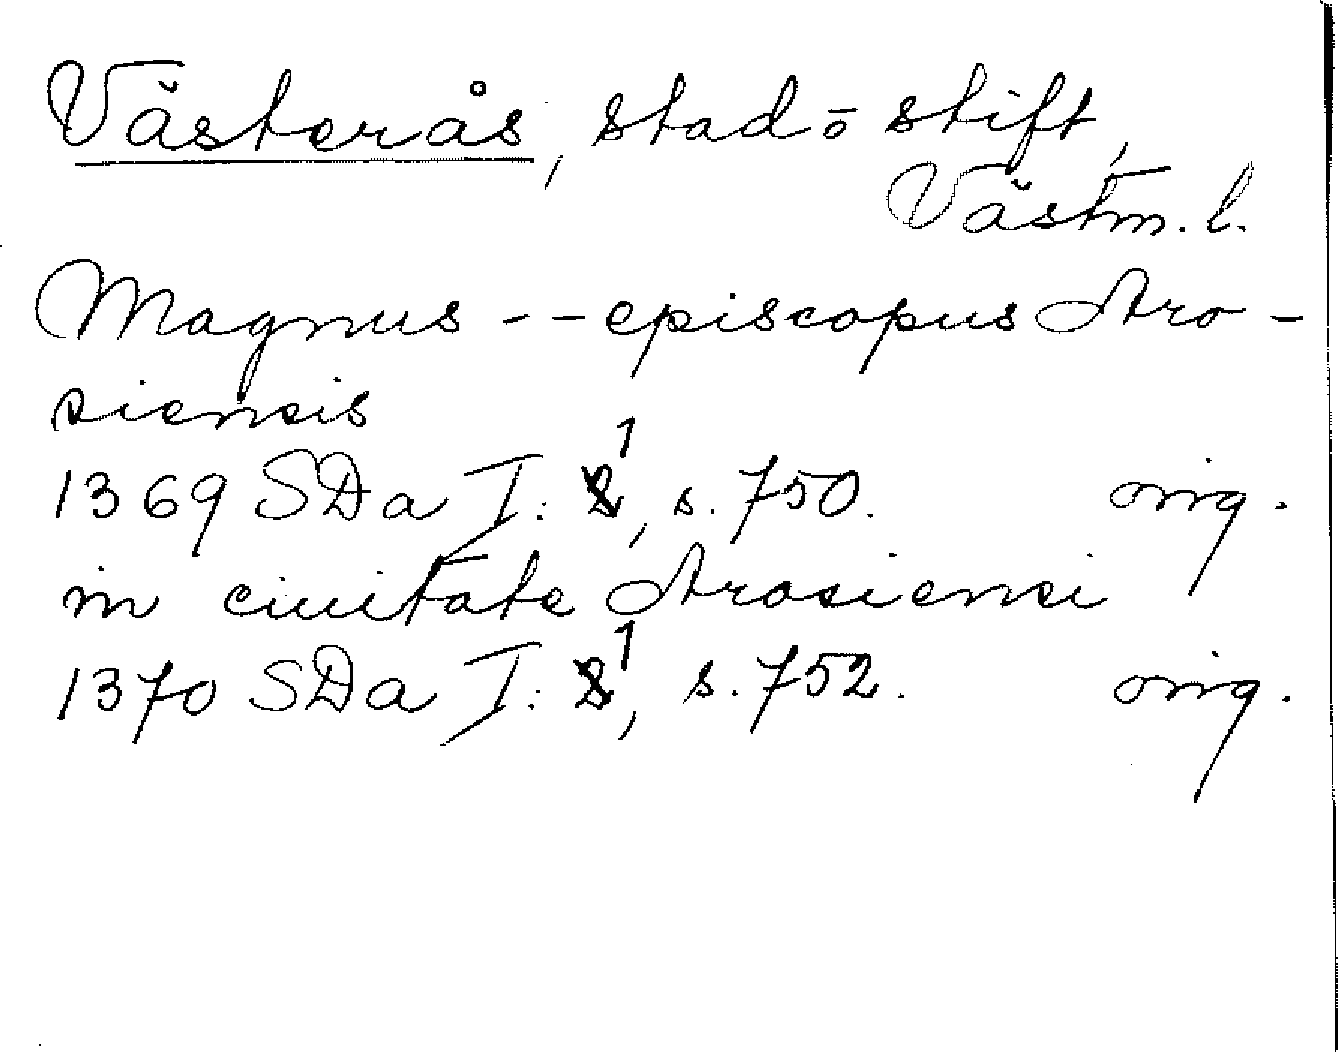 Västerås, stad o stift,
Västm. l.
Magnus - - episcopus Aro-
siensis
1369 SDa I: 1, s. 750. orig.
in ciuitate Arosiensi
1370 SDa I: 1, s. 752. orig.